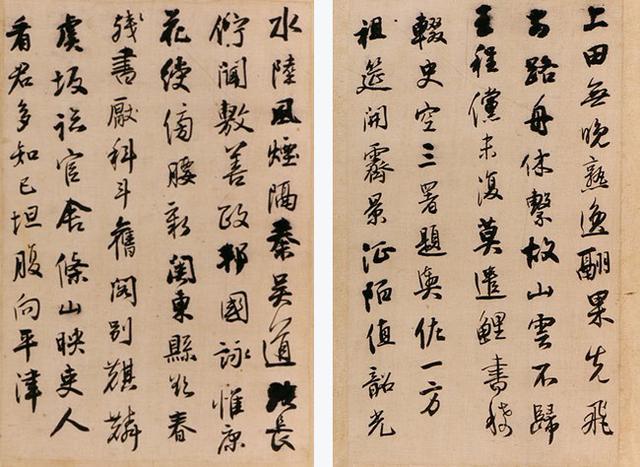 上田無晚熟逸翮果先飛
去路舟休繫故山雲不歸
王程儻未復莫遣鯉書稀
輟史空三署題輿佐一方
祖筵開霽景征陌值韶光
水陸風煙隔秦吳道路長
佇聞敷善政邦國詠惟康
花綬傍腰新關東縣欲春
殘書厭科斗舊閣別麒麟
虞坂臨官舍條山映吏人
看君多知己坦腹向平津